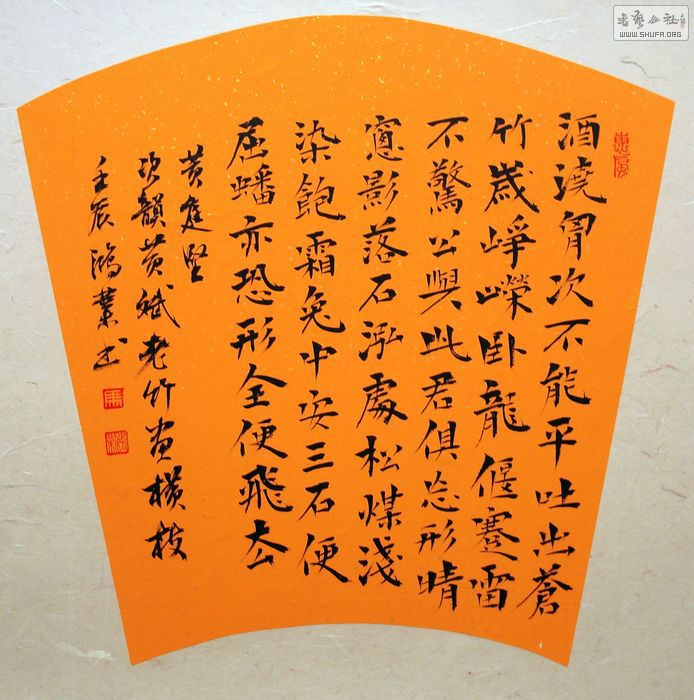 酒澆胷次不能平吐出蒼
竹歲崢嶸卧龍偃蹇雷
不驚公與此君俱忘形晴
窻影落石泓處松煤淺
染飽霜兔中安三石便
屈蟠亦恐形全便飛厺
黄庭堅
次韻黄斌老竹画橫枝
壬辰鴻業书
惠風
书艺公社
WWW.SHUFA.ORG